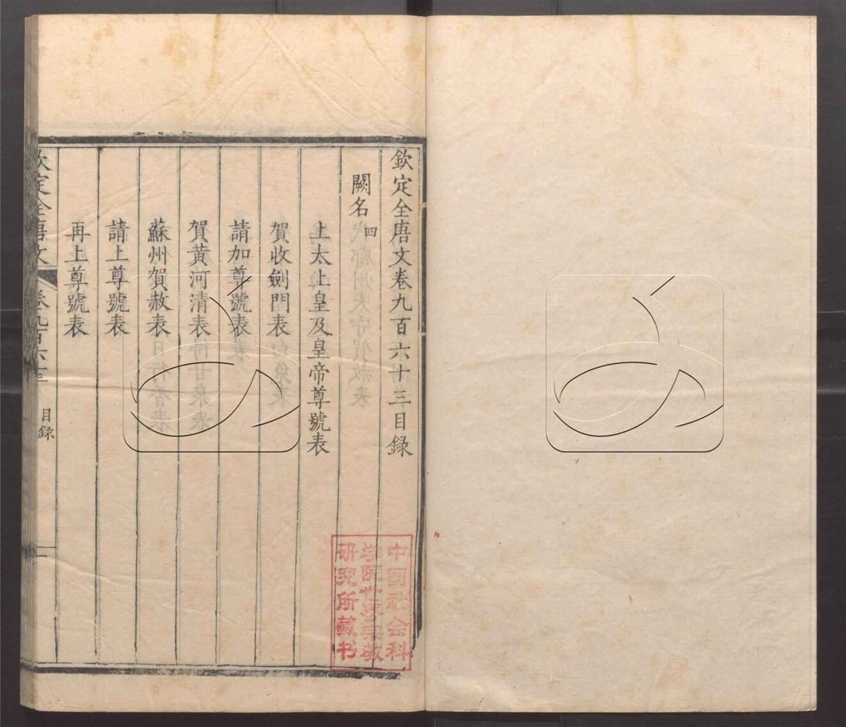 欽定全唐文卷九百六十三目録
闕名四
上太上皇及皇帝尊號表
賀收劍門表
請加尊號表
賀黃河清表
蘇州賀赦表
請上尊號表
再上尊號表
欽定全唐文 卷九百六十三 目録 一
中国社会科
学院世界宗教
研究所藏书